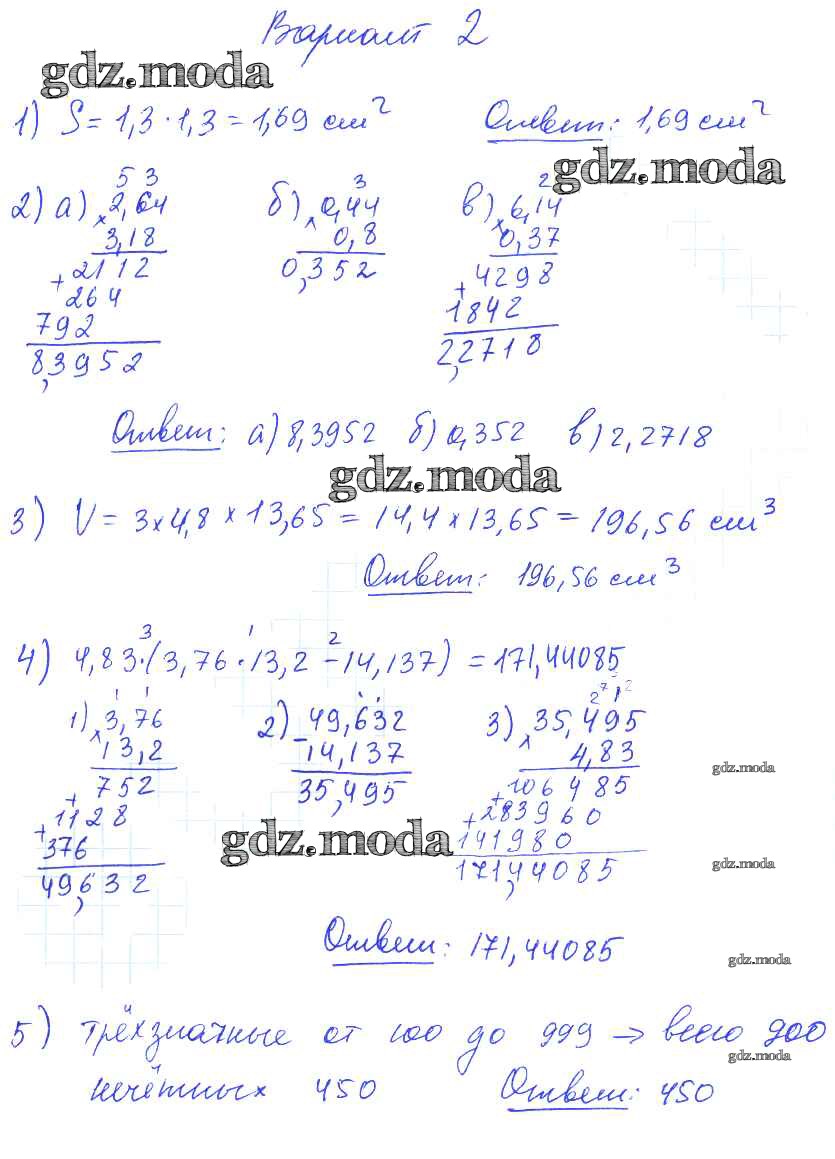 Вариант 2
gdz.moda
1) S = 1,3 · 1,3 = 1,69 см² Ответ: 1,69 см²
gdz.moda
5 3 3 2
2) а) × 2,64 б) × 0,44 в) × 6,14
3,18 0,8 0,37
+ 2112 0,352 + 4298
264 1842
792 2,2718
8,3952
Ответ: а) 8,3952 б) 0,352 в) 2,2718
gdz.moda
3) V = 3 × 4,8 × 13,65 = 14,4 × 13,65 = 196,56 см³
Ответ: 196,56 см³
3 1 2
4) 4,83 · (3,76 · 13,2 - 14,137) = 171,44085
1) × 3,76 2) - 49,632 3) × 35,495
13,2 14,137 4,83
+ 752 35,495 + 106485
+ 1128 + 283960
376 141980
49,632 171,44085
gdz.moda
gdz.moda
gdz.moda
Ответ: 171,44085
gdz.moda
5) трёхзначные от 100 до 999 → всего 900
gdz.moda
нечётных 450 Ответ: 450